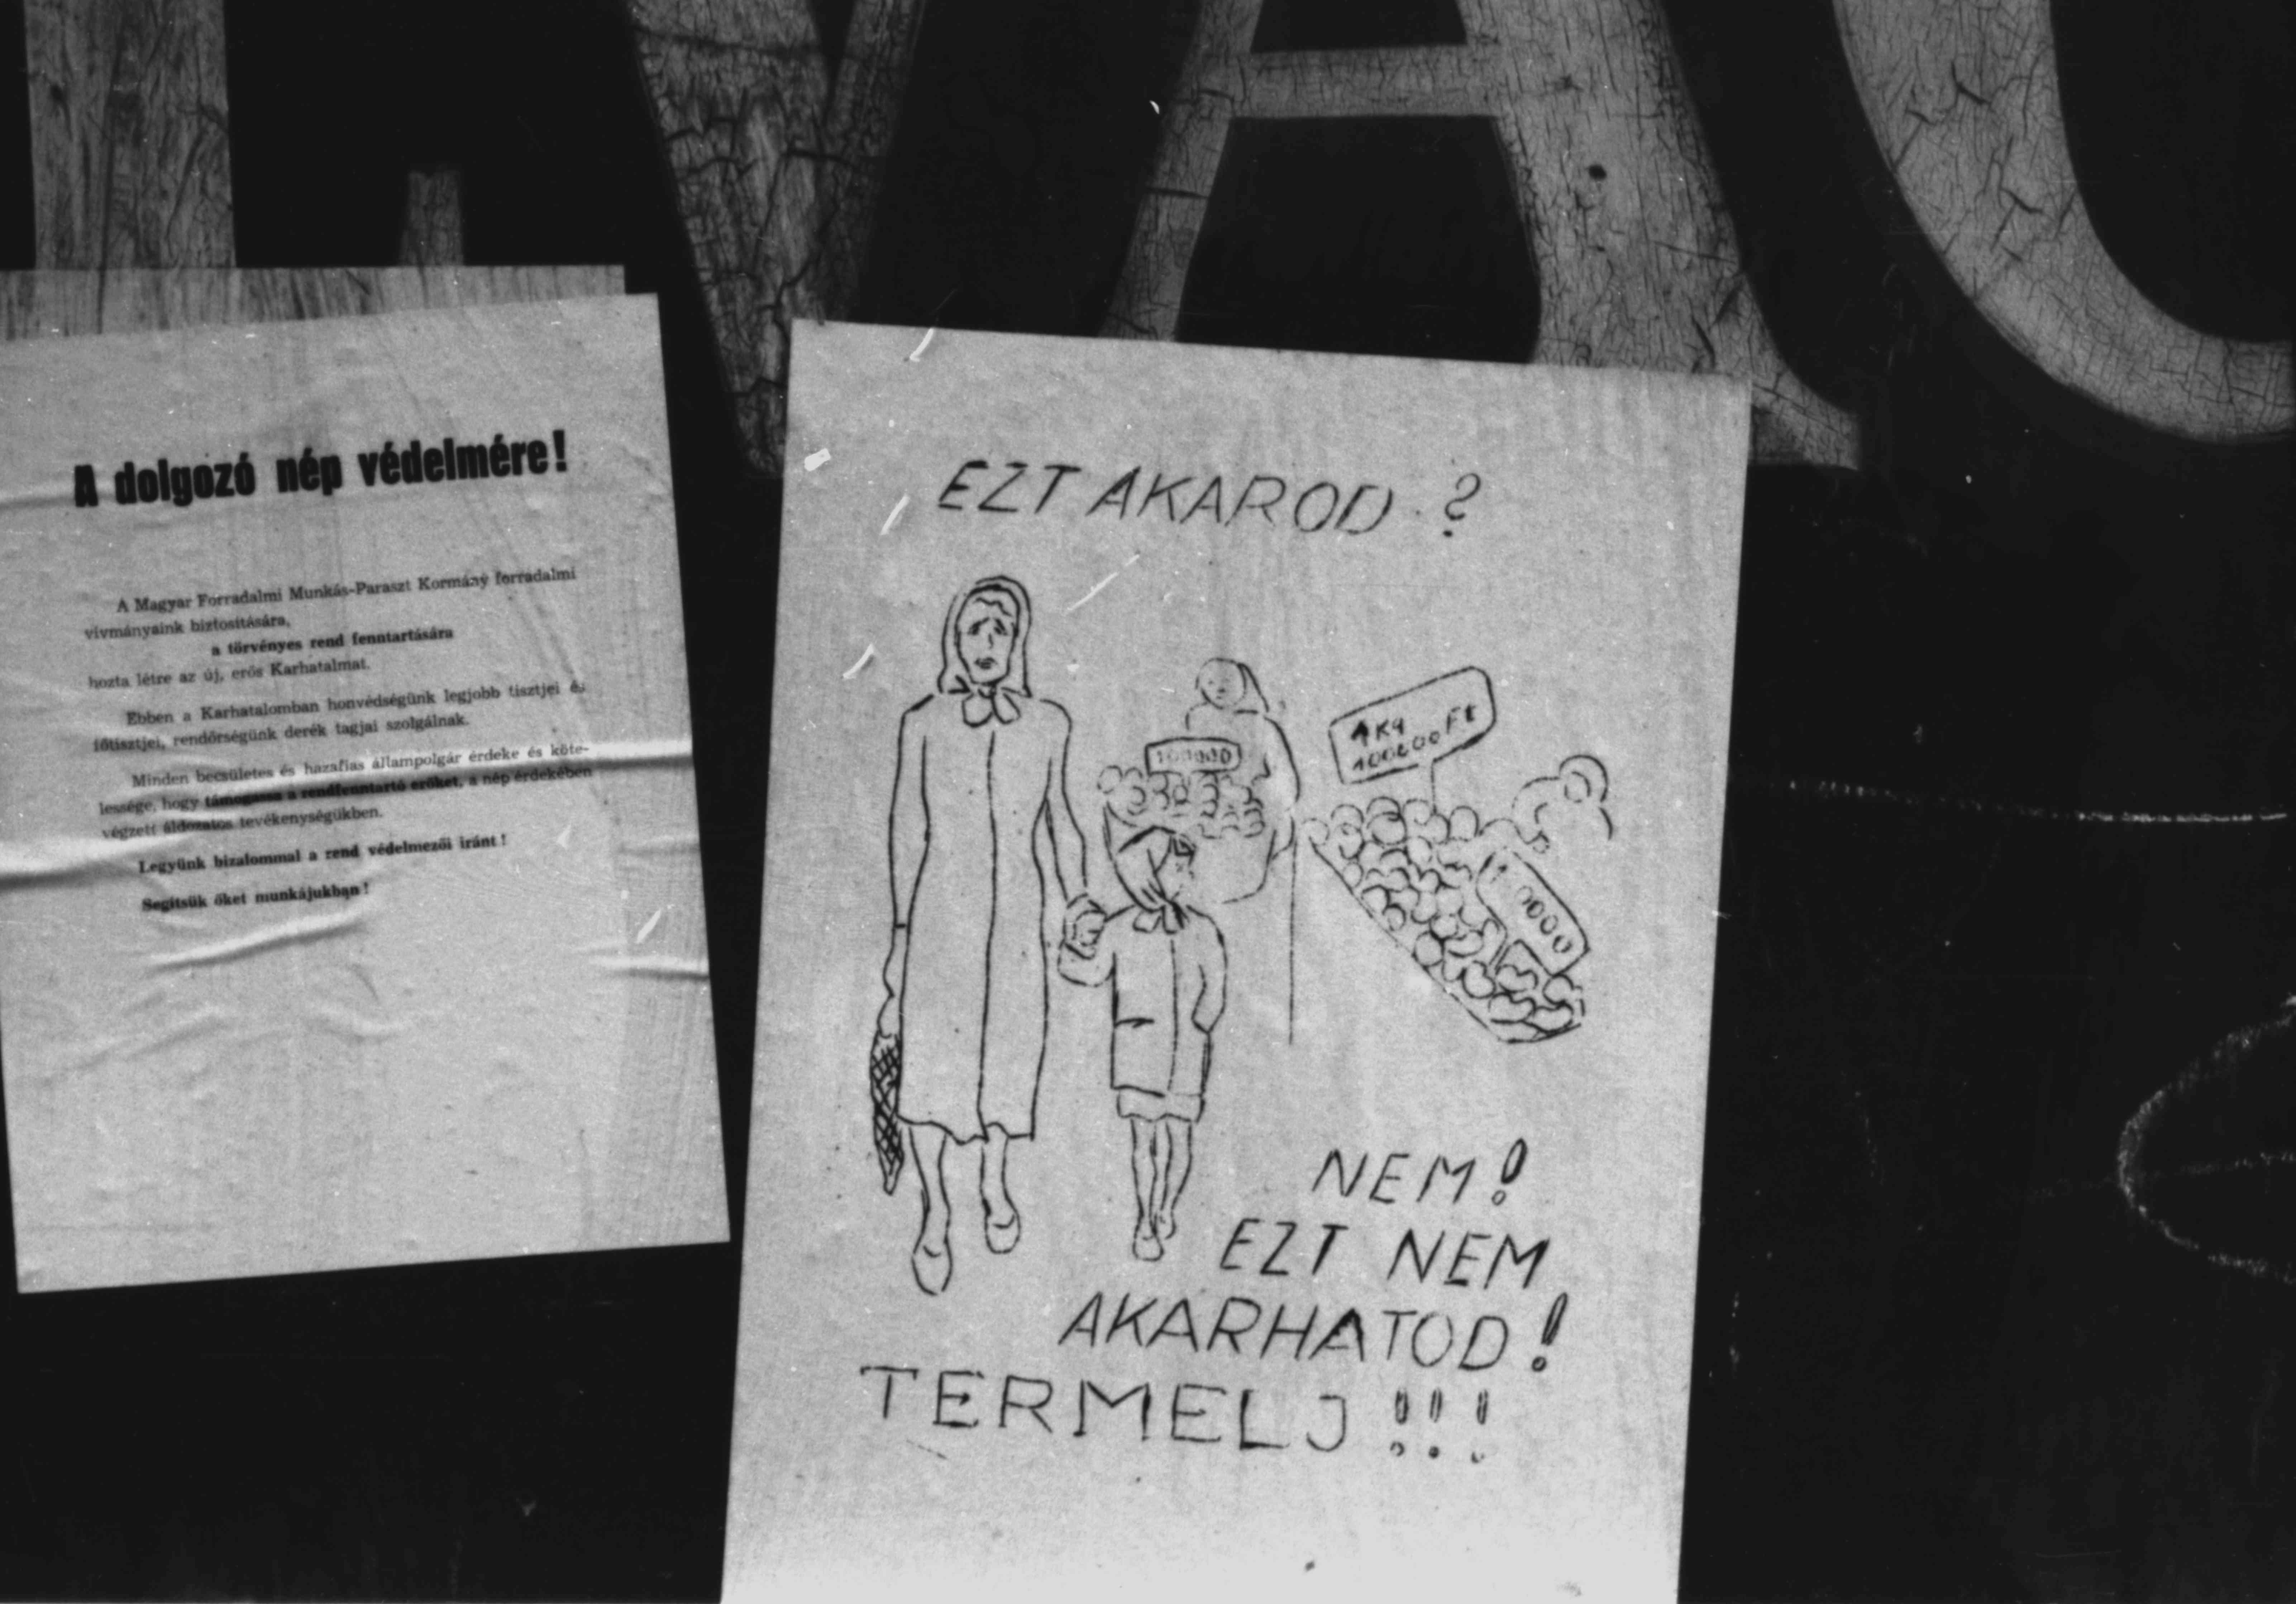 VAC
A dolgozó nép védelmére!
A Magyar Forradalmi Munkás-Paraszt Kormány forradalmi
vívmányaink biztosítására,
a törvényes rend fenntartására
hozta létre az új, erős Karhatalmat.
Ebben a Karhatalomban honvédségünk legjobb tisztjei és
főtisztjei, rendőrségünk derék tagjai szolgálnak.
Minden becsületes és hazafias állampolgár érdeke és köte-
lessége, hogy támogassa a rendfenntartó erőket, a nép érdekében
végzett áldozatos tevékenységükben.
Legyünk bizalommal a rend védelmezői iránt!
Segítsük őket munkájukban!
EZT AKAROD ?
100000
1 Kg
100000 Ft
1 0000
NEM!
EZT NEM
AKARHATOD!
TERMELJ!!!